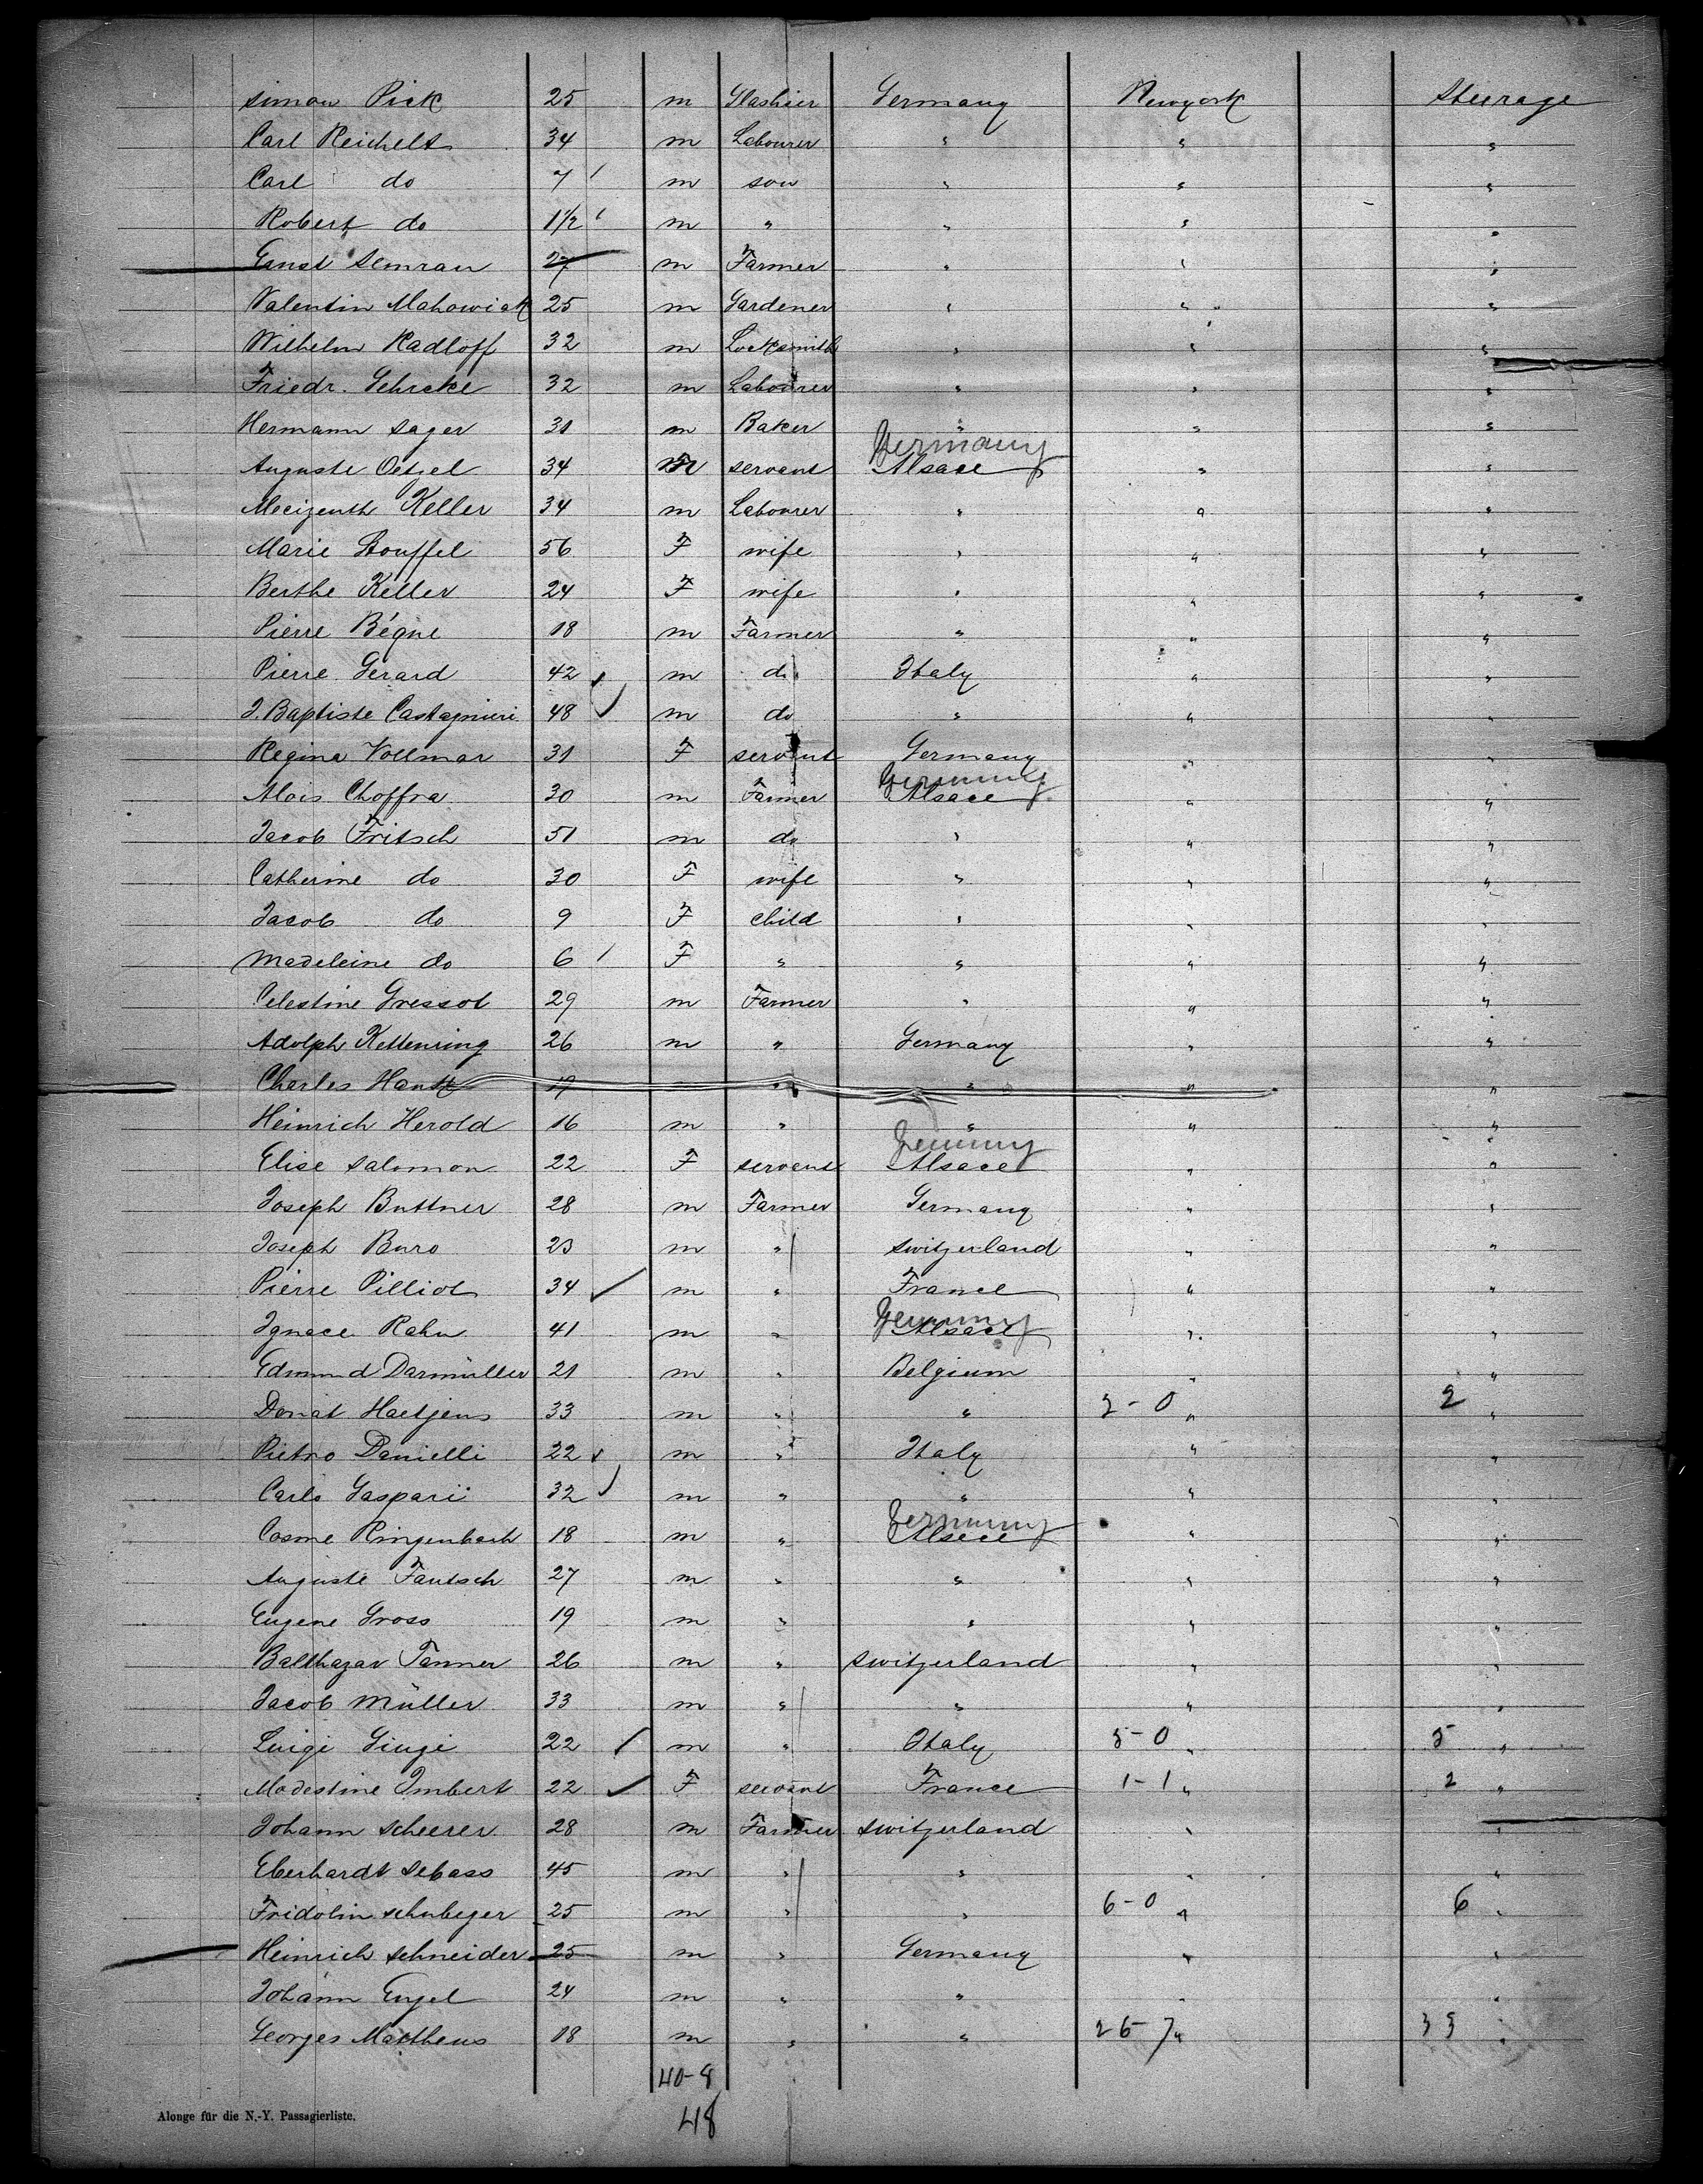 Simon Pick 25 m Glashier Germany Newyork Steerage
Carl Reichelt 34 m Labourer " " "
Carl do 7 m son " " "
Robert do 1 1/2 m " " " "
Ernst Semrau 27 m Farmer " " "
Valentin Mahowiak 25 m Gardener " " "
Wilhelm Radloff 32 m Locksmith " " "
Friedr. Gehrcke 32 m Labourer " " "
Hermann Sager 31 m Baker " " "
Germany
Auguste Oetzel 34 servant Alsace " "
Keller 34 m Labourer " " "
Marie Stouffel 56 F wife " " "
Berthe Keller 24 F wife " " "
Pierre Bégue 18 m Farmer " " "
Pierre Gerard 42 m do Italy " "
J. Baptiste Castagnieri 48 m do " " "
Regina Vollmar 31 F servant Germany " "
Germany
Alois Choffra 30 m Farmer Alsace " "
Jacob Fritsch 51 m do " " "
Catherine do 30 F wife " " "
Jacob do 9 F child " " "
Madeleine do 6 F " " " "
Celestine Gressot 29 m Farmer " " "
Adolph Kettenring 26 m " Germany " "
Charles 19 " " " "
Heinrich Herold 16 m " " " "
Germany
Elise Salomon 22 F servant Alsace " "
Joseph Buttner 28 m Farmer Germany " "
Joseph Buro 23 m " Switzerland " "
Pierre Pilliot 34 m " France " "
Germany
Ignace Rahn 41 m " Alsace " "
Edmund Darmüller 21 m " Belgium " "
Donat Haetjens 33 m " " 2-0 " 2 "
Pietro Danielli 22 m " Italy " "
Carlo Gaspari 32 m " " " "
Germany
Cosme Ringenbach 18 m " Alsace " "
Auguste Fautsch 27 m " " " "
Eugene Gross 19 m " " " "
Balthazar Tanner 26 m " Switzerland " "
Jacob Müller 33 m " " " "
Luigi Giugi 22 m " Italy 5-0 " 5 "
Modestine Imbert 22 F servant France 1-1 " 2 "
Johann Scheerer 28 m Farmer Switzerland " "
Eberhardt Sebass 45 m " " " "
Fridolin Schubeger 25 m " " 6-0 " 6 "
Heinrich Schneider 25 m " Germany " "
Johann Engel 24 m " " " "
Georges Mattheus 18 m " " 26-7 " 33 "
40-8
48
Alonge für die N.-Y. Passagierliste.